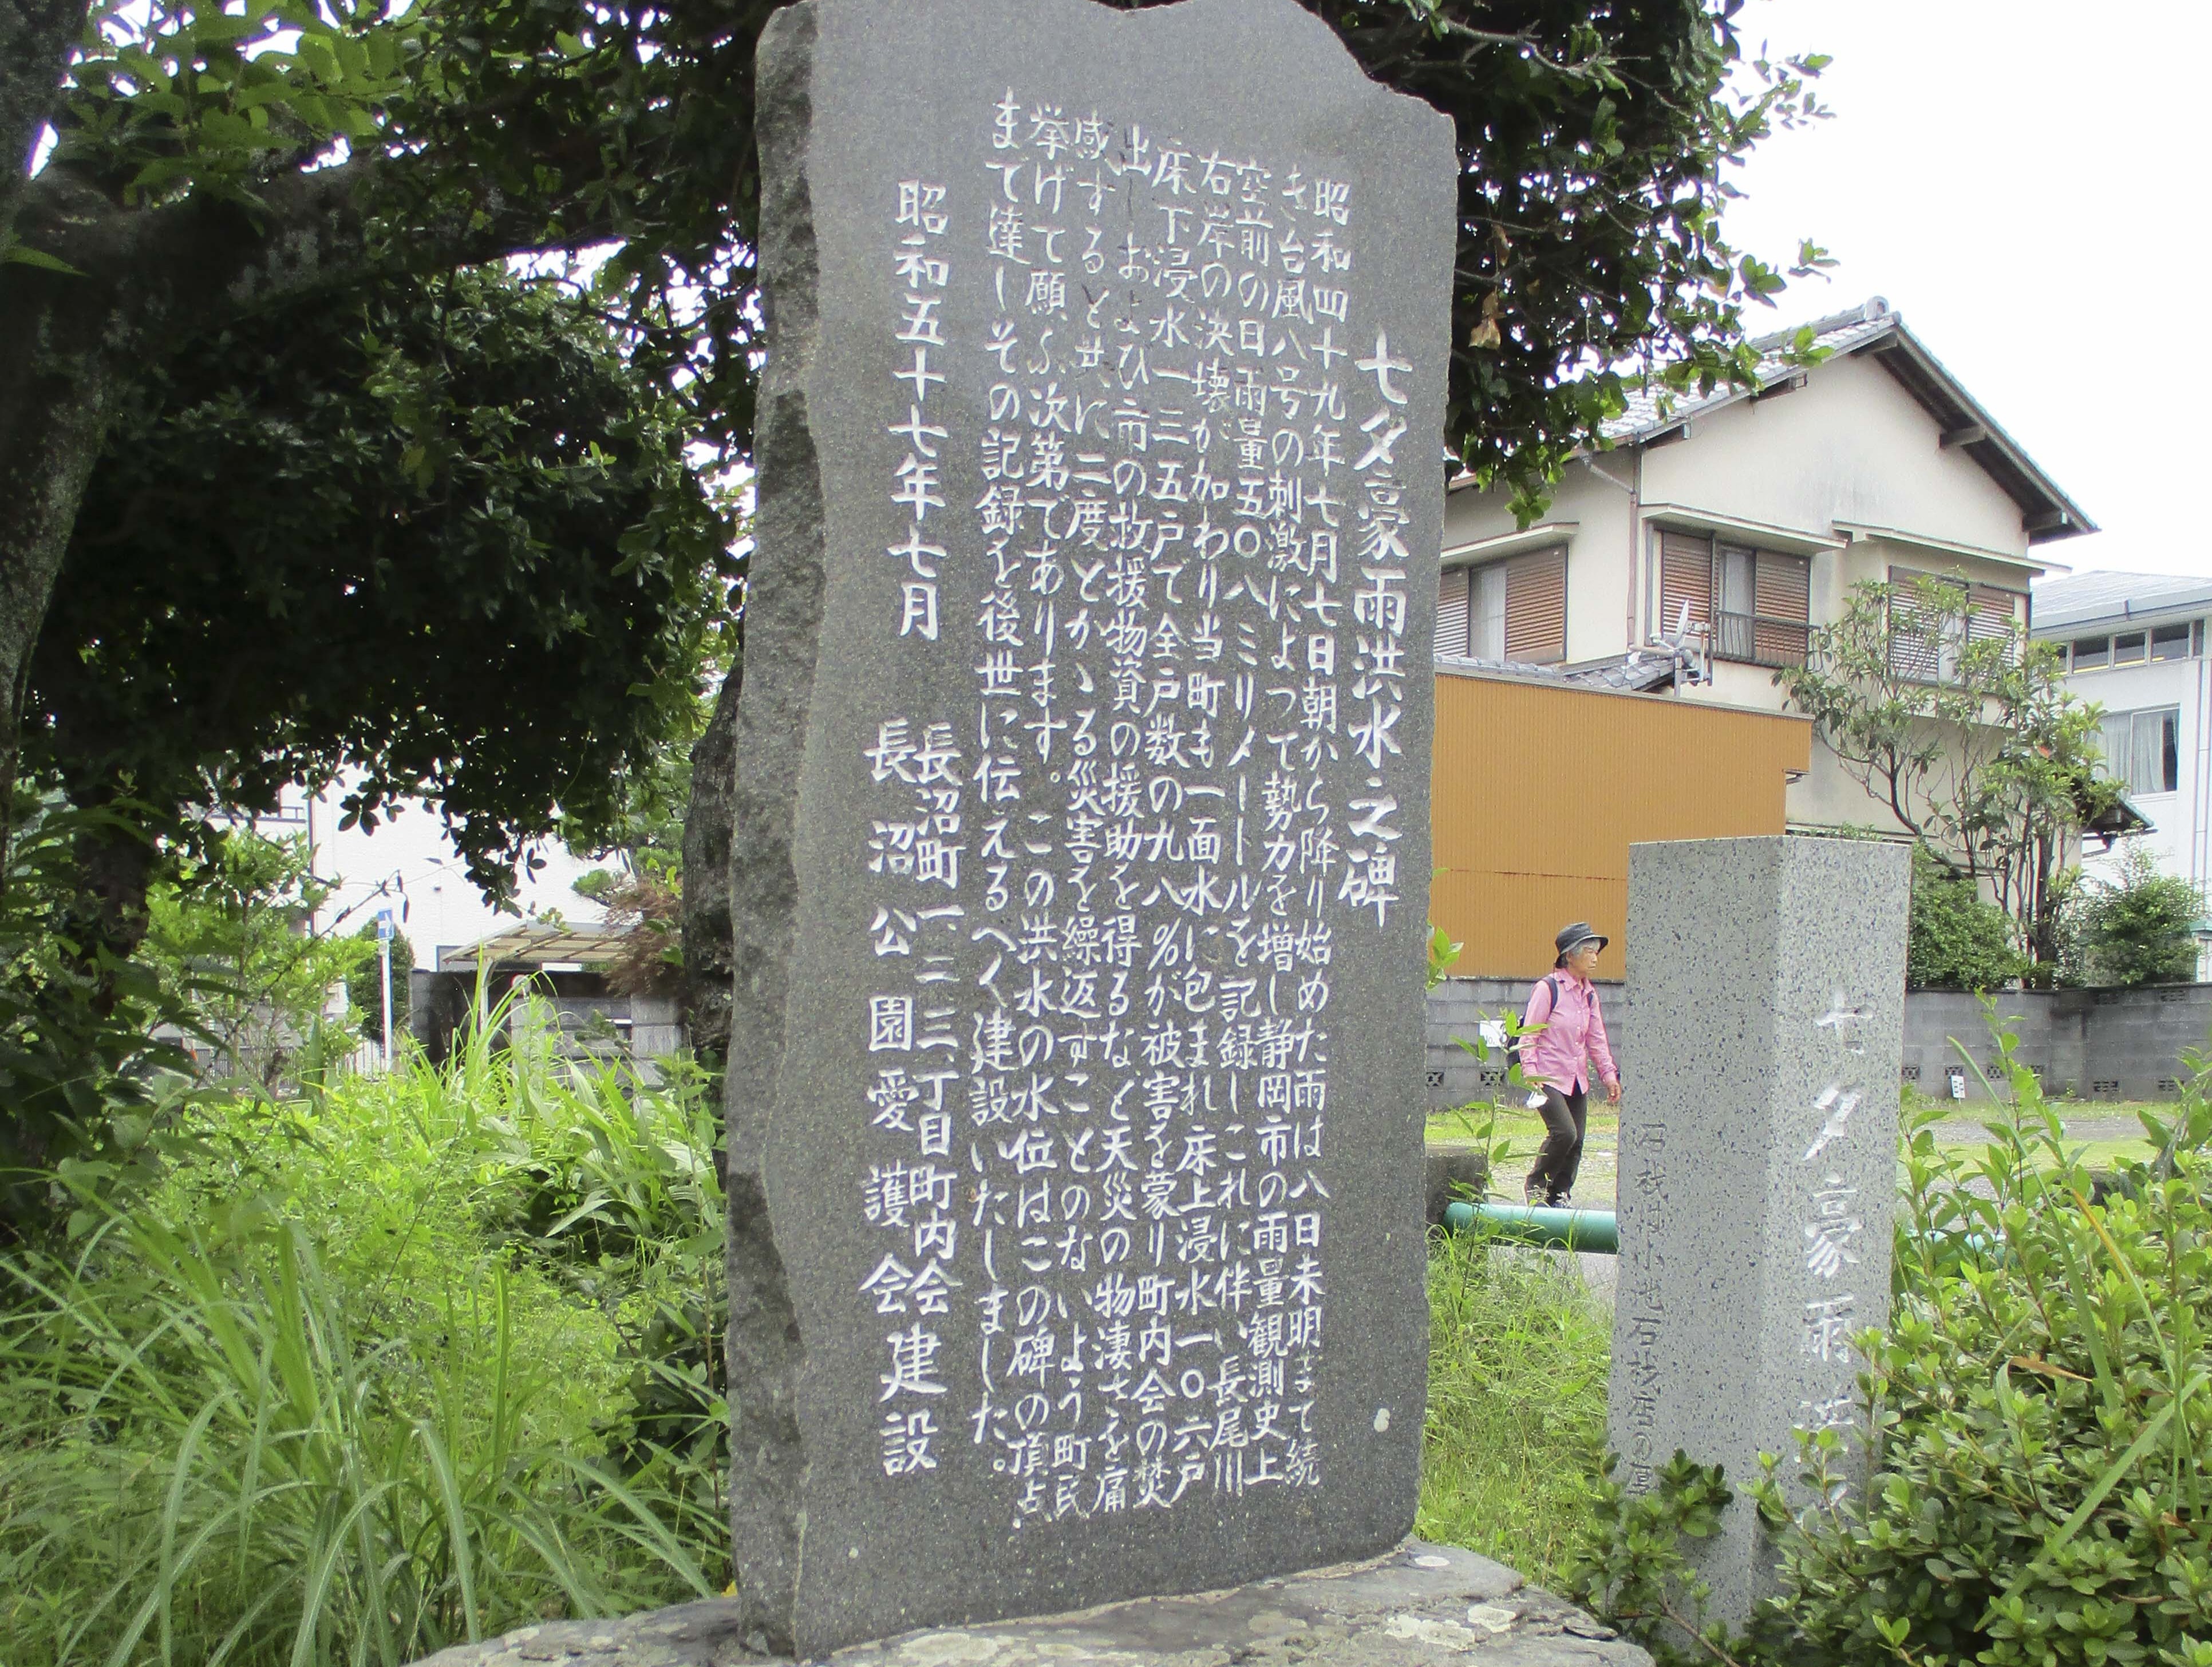 七夕豪雨洪水之碑
昭和四十九年七月七日朝から降り始めた雨は八日未明まで続
き台風八号の刺激によって勢力を増し静岡市の雨量観測史上
空前の日雨量五〇八ミリメートルを記録しこれに伴い長尾川
右岸の決壊が加わり当町も一面水に包まれ床上浸水一〇六戸
床下浸水一三五戸で全戸数の九八%が被害を蒙り町内会の焚
出しおよび市の救援物資の援助を得るなど天災の物凄さを痛
感すると共に二度とかゝる災害を繰返すことのないよう町民
挙げて願ふ次第であります。この洪水の水位はこの碑の頂点
まで達しその記録を後世に伝えるべく建設いたしました。
昭和五十七年七月
長沼町一、二、三、丁目町内会
長沼公園愛護会建設
七夕豪雨